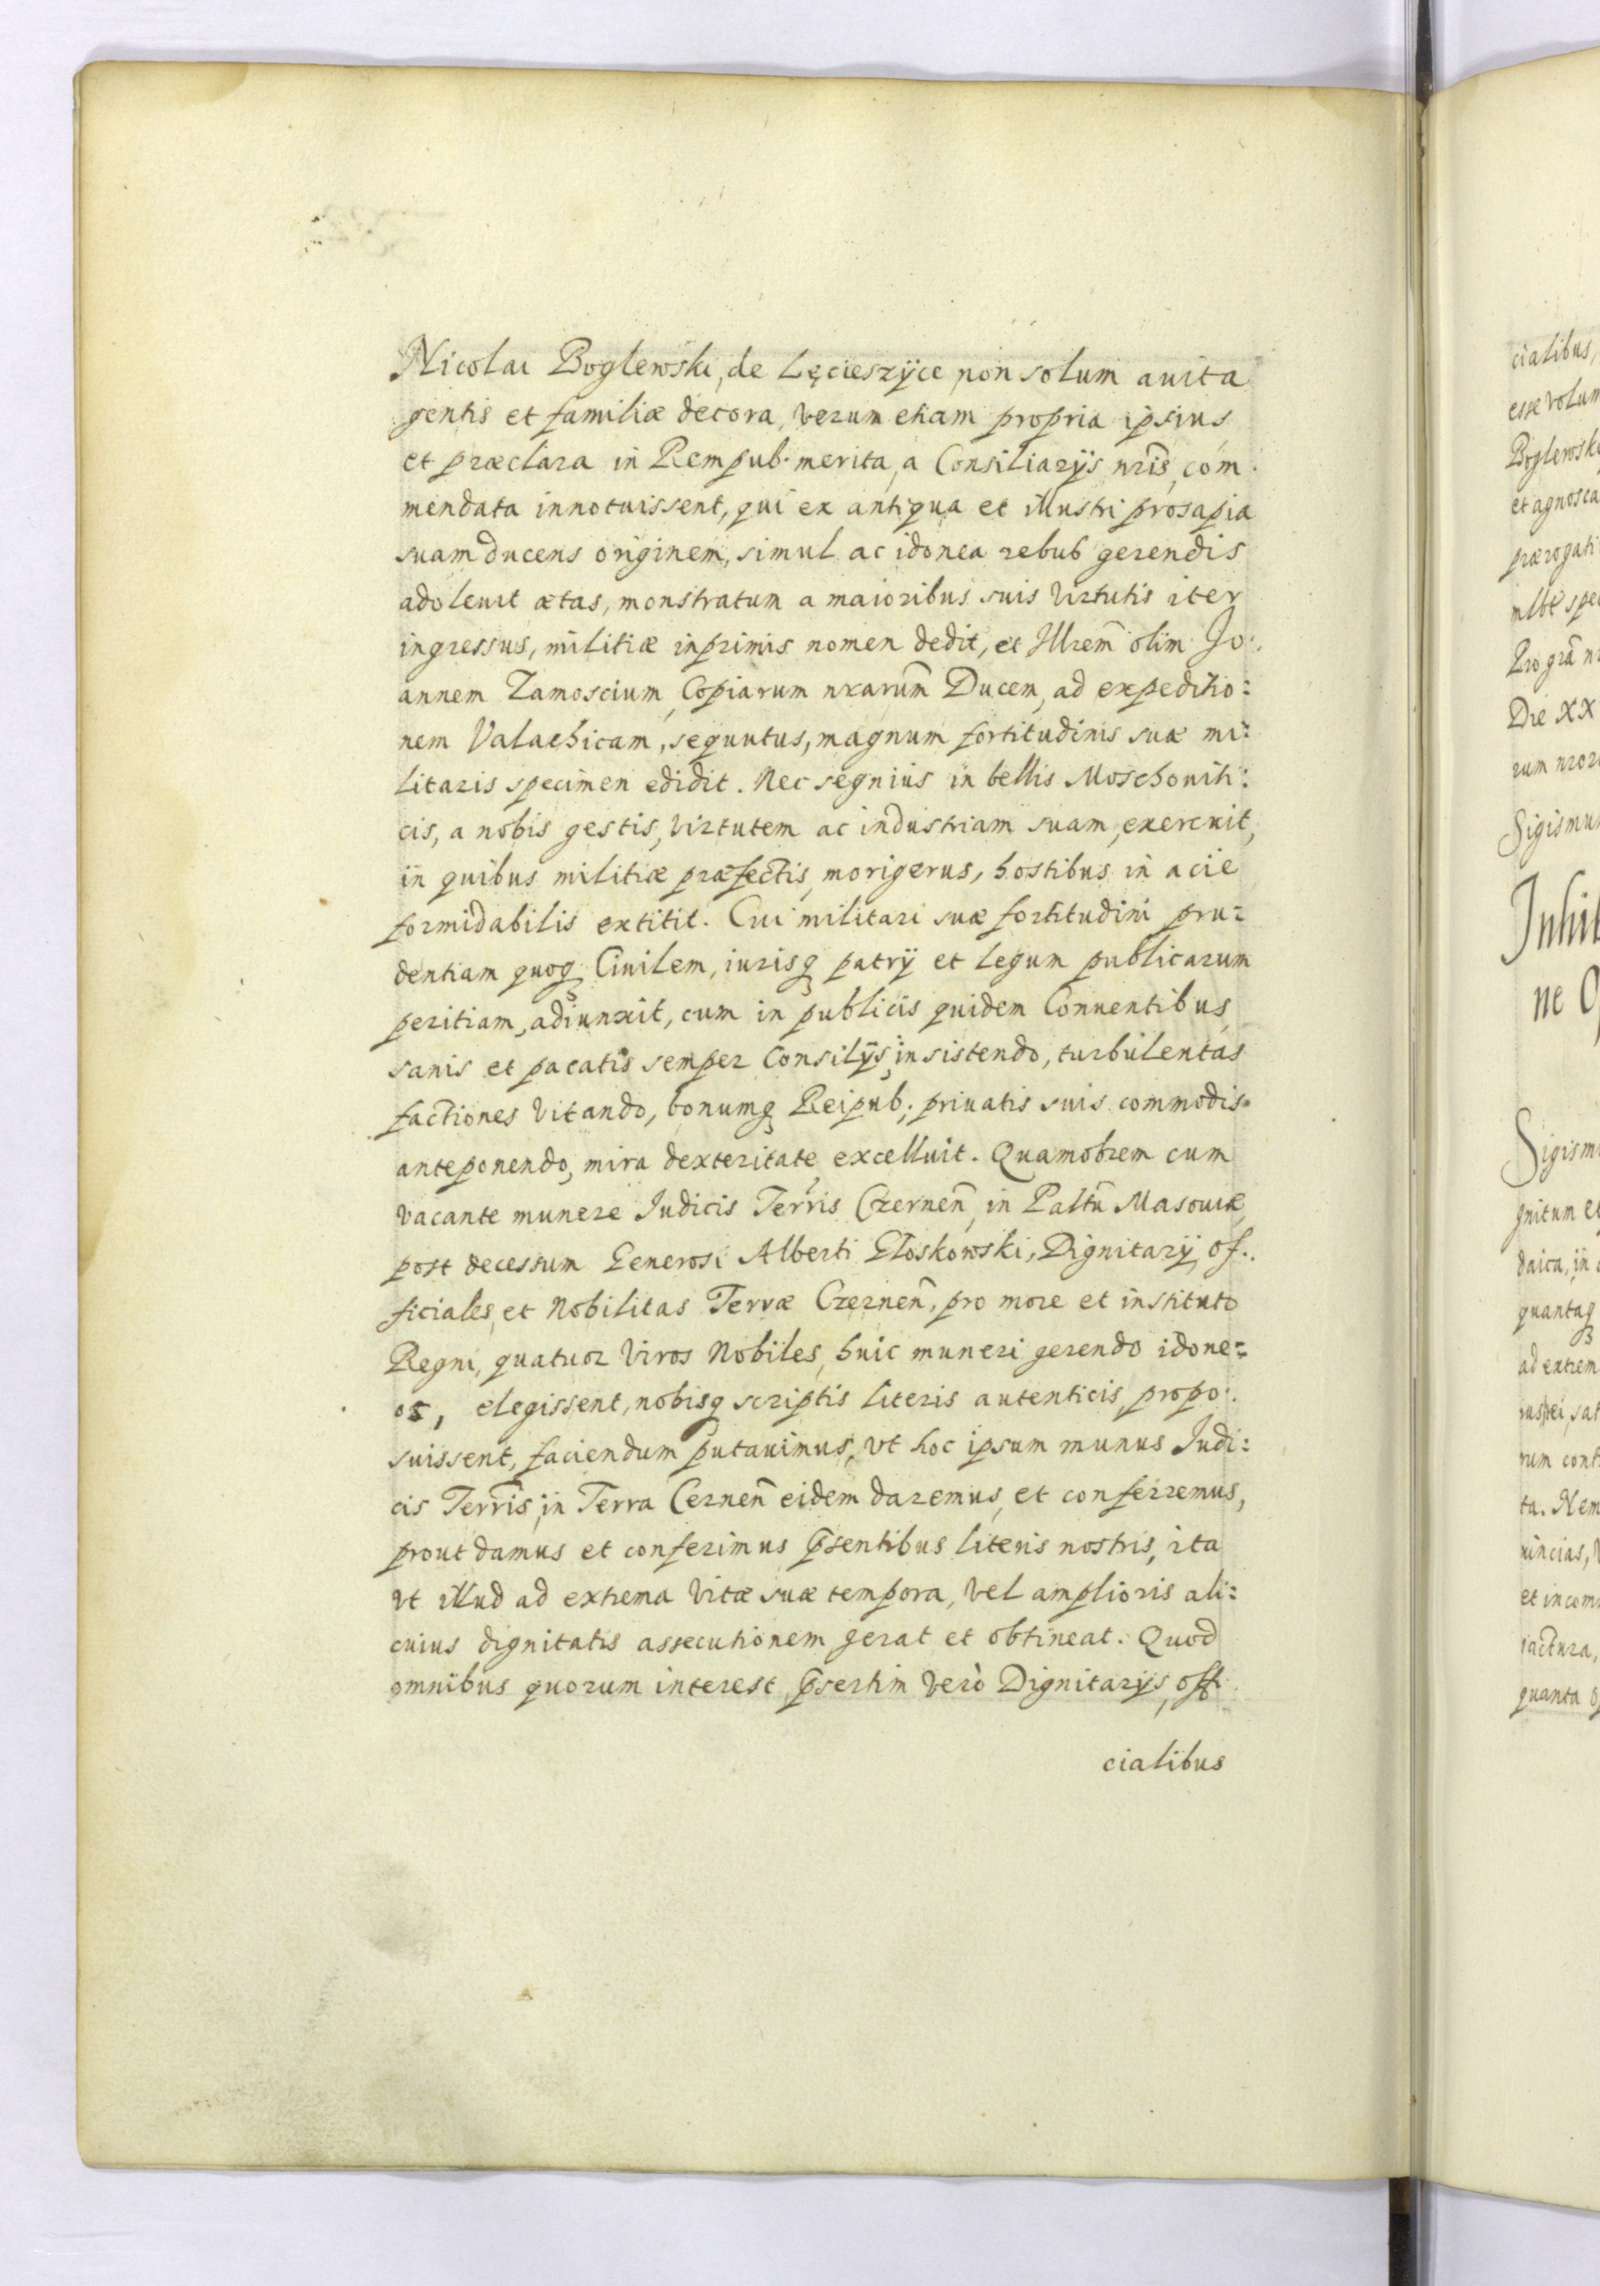 Nicolai Boglewski, de Lęcieszÿce non solum auita
gentis et familiæ decora, verum etiam propria ipsius
et præclara in Rempub. merita, a Consiliarÿs nr̃is, com:
mendata innotuissent, qui ex antiqua et illustri prosapia
suam ducens originem, simul ac idonea rebus gerendis
adoleuit ætas, monstratum a maioribus suis virtutis iter
ingressus, militiæ inprimis nomen dedit, et Illrem̃ olim Jo:
annem Zamoscium, Copiarum nrarum̃ Ducem, ad expeditio:
nem Valachicam, sequutus, magnum fortitudinis suæ mi:
litaris specimen edidit. Nec segnius in bellis Moschouiti:
cis, a nobis gestis, virtutem ac industriam suam, exercuit,
in quibus militiæ præfectis, morigerus, hostibus in acie
formidabilis extitit. Cui militari suæ fortitudini pru:
dentiam quoq́ Ciuilem, iurisq́ patrÿ et legum publicarum
peritiam, adiunxit, cum in publicis quidem Conuentibus
sanis et pacatis semper Consilÿs, insistendo, turbulentas
factiones vitando, bonumq́ Reipub: priuatis suis commodis
anteponendo, mira dexteritate excelluit. Quamobrem cum
vacante munere Iudicis Terr̃is Czernen̄, in Paltũ Masouiæ,
post decessum Generosi Alberti Gloskowski, Dignitarÿ, of:
ficiales, et Nobilitas Terræ Czernen̄, pro more et instituto
Regni, quatuor Viros Nobiles, huic muneri gerendo idone:
os, elegissent, nobisq́ scriptis literis autenticis, propo:
suissent, faciendum putauimus, vt hoc ipsum munus Iudi:
cis Terr̃is, in Terra Cernen̄ eidem daremus, et conferremus,
prout damus et conferimus p̃sentibus literis nostris, ita
vt illud ad extrema vitæ suæ tempora, vel amplioris ali:
cuius dignitatis assecutionem gerat et obtineat. Quod
omnibus quorum interest, p̃sertim verò Dignitarÿs, offi:
cialibus
cialibus,
esse volum
Boglewski
et agnosca
prærogati
mlbt̃ spec
Pro grã nr
Die XX
rum nror
Sigismun
Inhib
ne O
Sigism
gnitum et
daica, in
quantaq́
ad extrem
sat
rum cont
ta. Nem
uincias, v
et incom
iactura,
quanta